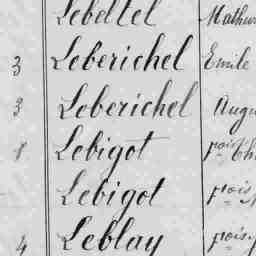 Lebeltel Mathu
3 Leberichel Emile
3 Leberichel Augu
8 Lebigot
Lebigot
4 Leblay